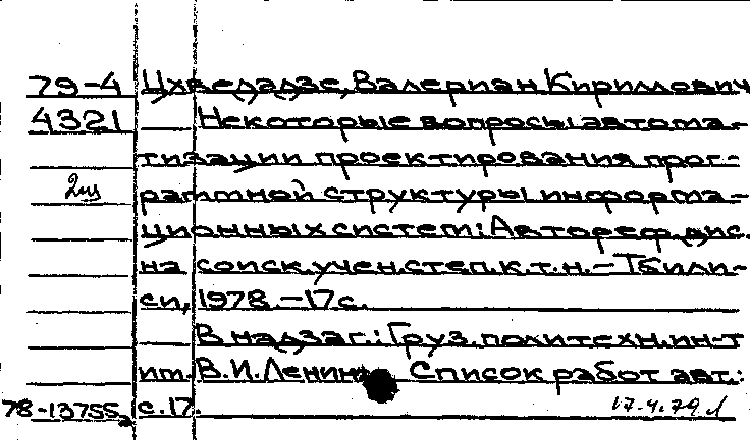 79-4 Цхведадзе, Валериан Кириллович
4321 Некоторые вопросы автома-
тизации проектирования прог-
2 раммной структуры информа-
ционных систем: Автореф. дис.
на соиск. учен. степ. к.т.н. - Тбили-
си, 1978. - 17 с.
В надзаг.: Груз. политехн. ин-т
им. В.И. Ленина. Список работ авт.:
78-13755 с. 17. 17.4.79